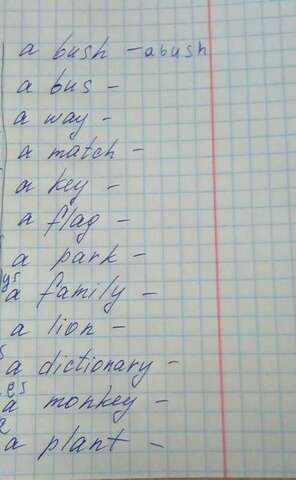 a bush - abush
a bus -
a way -
a match -
a key -
a flag -
a park -
ys
a family -
a lion -
s
a dictionary -
es
a monkey -
a plant -